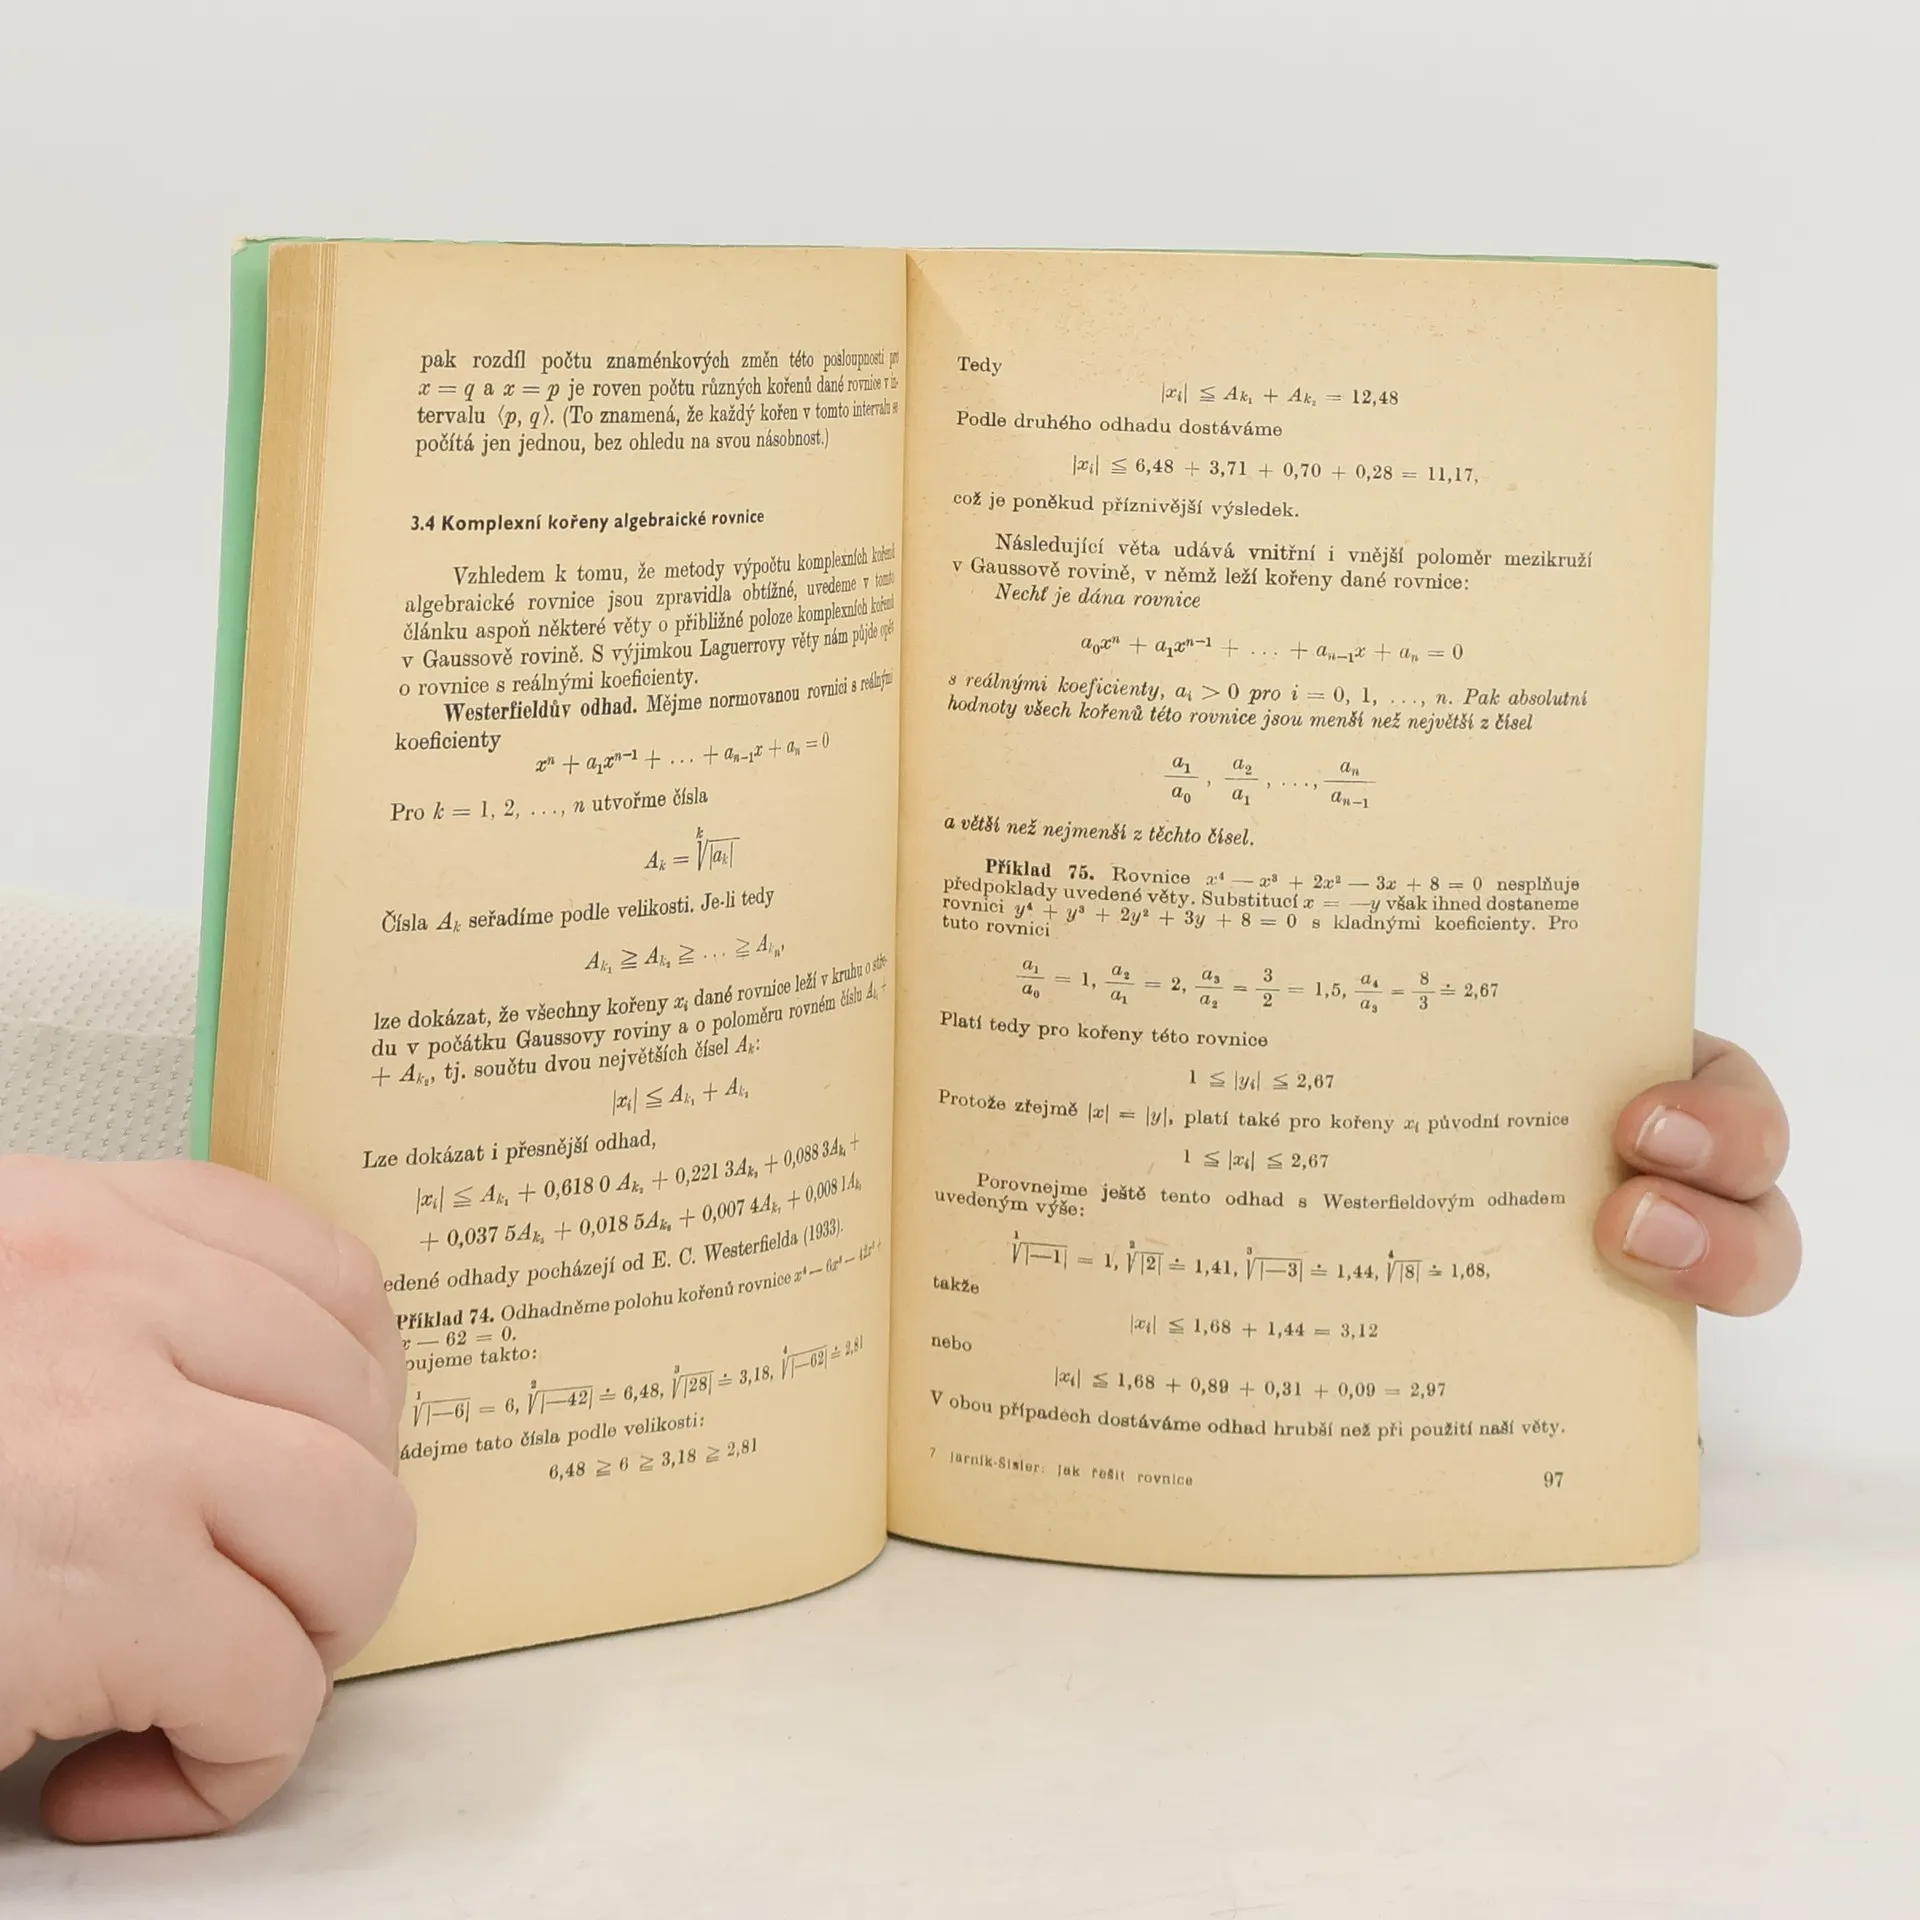 pak rozdíl počtu znaménkových změn této posloupnosti pro
x = q a x = p je roven počtu různých kořenů dané rovnice v in-
tervalu ⟨p, q⟩. (To znamená, že každý kořen v tomto intervalu se
počítá jen jednou, bez ohledu na svou násobnost.)
3.4 Komplexní kořeny algebraické rovnice
Vzhledem k tomu, že metody výpočtu komplexních kořenů
algebraické rovnice jsou zpravidla obtížné, uvedeme v tomto
článku aspoň některé věty o přibližné poloze komplexních kořenů
v Gaussově rovině. S výjimkou Laguerrovy věty nám půjde opět
o rovnice s reálnými koeficienty.
Westerfieldův odhad. Mějme normovanou rovnici s reálnými
koeficienty
xⁿ + a₁xⁿ⁻¹ + ... + aₙ₋₁x + aₙ = 0
Pro k = 1, 2, ..., n utvořme čísla
Aₖ = ᵏ√|aₖ|
Čísla Aₖ seřadíme podle velikosti. Je-li tedy
A_{k₁} ≧ A_{k₂} ≧ ... ≧ A_{kₙ},
lze dokázat, že všechny kořeny xᵢ dané rovnice leží v kruhu o stře-
du v počátku Gaussovy roviny a o poloměru rovném číslu A_{k₁} +
+ A_{k₂}, tj. součtu dvou největších čísel Aₖ:
|xᵢ| ≦ A_{k₁} + A_{k₂}
Lze dokázat i přesnější odhad,
|xᵢ| ≦ A_{k₁} + 0,618 0 A_{k₂} + 0,221 3A_{k₃} + 0,088 3A_{k₄} +
+ 0,037 5A_{k₅} + 0,018 5A_{k₆} + 0,007 4A_{k₇} + 0,008 1A_{k₈}
edené odhady pocházejí od E. C. Westerfielda (1933).
Příklad 74. Odhadněme polohu kořenů rovnice x⁴ — 6x³ — 42x² +
x — 62 = 0.
pujeme takto:
¹√|—6| = 6, ²√|—42| ≐ 6,48, ³√|28| ≐ 3,18, ⁴√|—62| ≐ 2,81
ádejme tato čísla podle velikosti:
6,48 ≧ 6 ≧ 3,18 ≧ 2,81
Tedy
|xᵢ| ≦ A_{k₁} + A_{k₂} = 12,48
Podle druhého odhadu dostáváme
|xᵢ| ≦ 6,48 + 3,71 + 0,70 + 0,28 = 11,17,
což je poněkud příznivější výsledek.
Následující věta udává vnitřní i vnější poloměr mezikruží
v Gaussově rovině, v němž leží kořeny dané rovnice:
Nechť je dána rovnice
a₀xⁿ + a₁xⁿ⁻¹ + ... + aₙ₋₁x + aₙ = 0
s reálnými koeficienty, aᵢ > 0 pro i = 0, 1, ..., n. Pak absolutní
hodnoty všech kořenů této rovnice jsou menší než největší z čísel
a₁/a₀, a₂/a₁, ..., aₙ/aₙ₋₁
a větší než nejmenší z těchto čísel.
Příklad 75. Rovnice x⁴ — x³ + 2x² — 3x + 8 = 0 nesplňuje
předpoklady uvedené věty. Substitucí x = —y však ihned dostaneme
rovnici y⁴ + y³ + 2y² + 3y + 8 = 0 s kladnými koeficienty. Pro
tuto rovnici
a₁/a₀ = 1, a₂/a₁ = 2, a₃/a₂ = 3/2 = 1,5, a₄/a₃ = 8/3 ≐ 2,67
Platí tedy pro kořeny této rovnice
1 ≦ |yᵢ| ≦ 2,67
Protože zřejmě |x| = |y|, platí také pro kořeny xᵢ původní rovnice
1 ≦ |xᵢ| ≦ 2,67
Porovnejme ještě tento odhad s Westerfieldovým odhadem
uvedeným výše:
¹√|—1| = 1, ²√|2| ≐ 1,41, ³√|—3| ≐ 1,44, ⁴√|8| ≐ 1,68,
takže
|xᵢ| ≦ 1,68 + 1,44 = 3,12
nebo
|xᵢ| ≦ 1,68 + 0,89 + 0,31 + 0,09 = 2,97
V obou případech dostáváme odhad hrubší než při použití naší věty.
7 Jarník-Šisler: Jak řešit rovnice
97